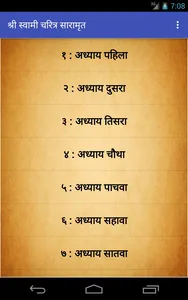 7:08
श्री स्वामी चरित्र सारामृत
१ : अध्याय पहिला
२ : अध्याय दुसरा
३ : अध्याय तिसरा
४ : अध्याय चौथा
५ : अध्याय पाचवा
६ : अध्याय सहावा
७ : अध्याय सातवा